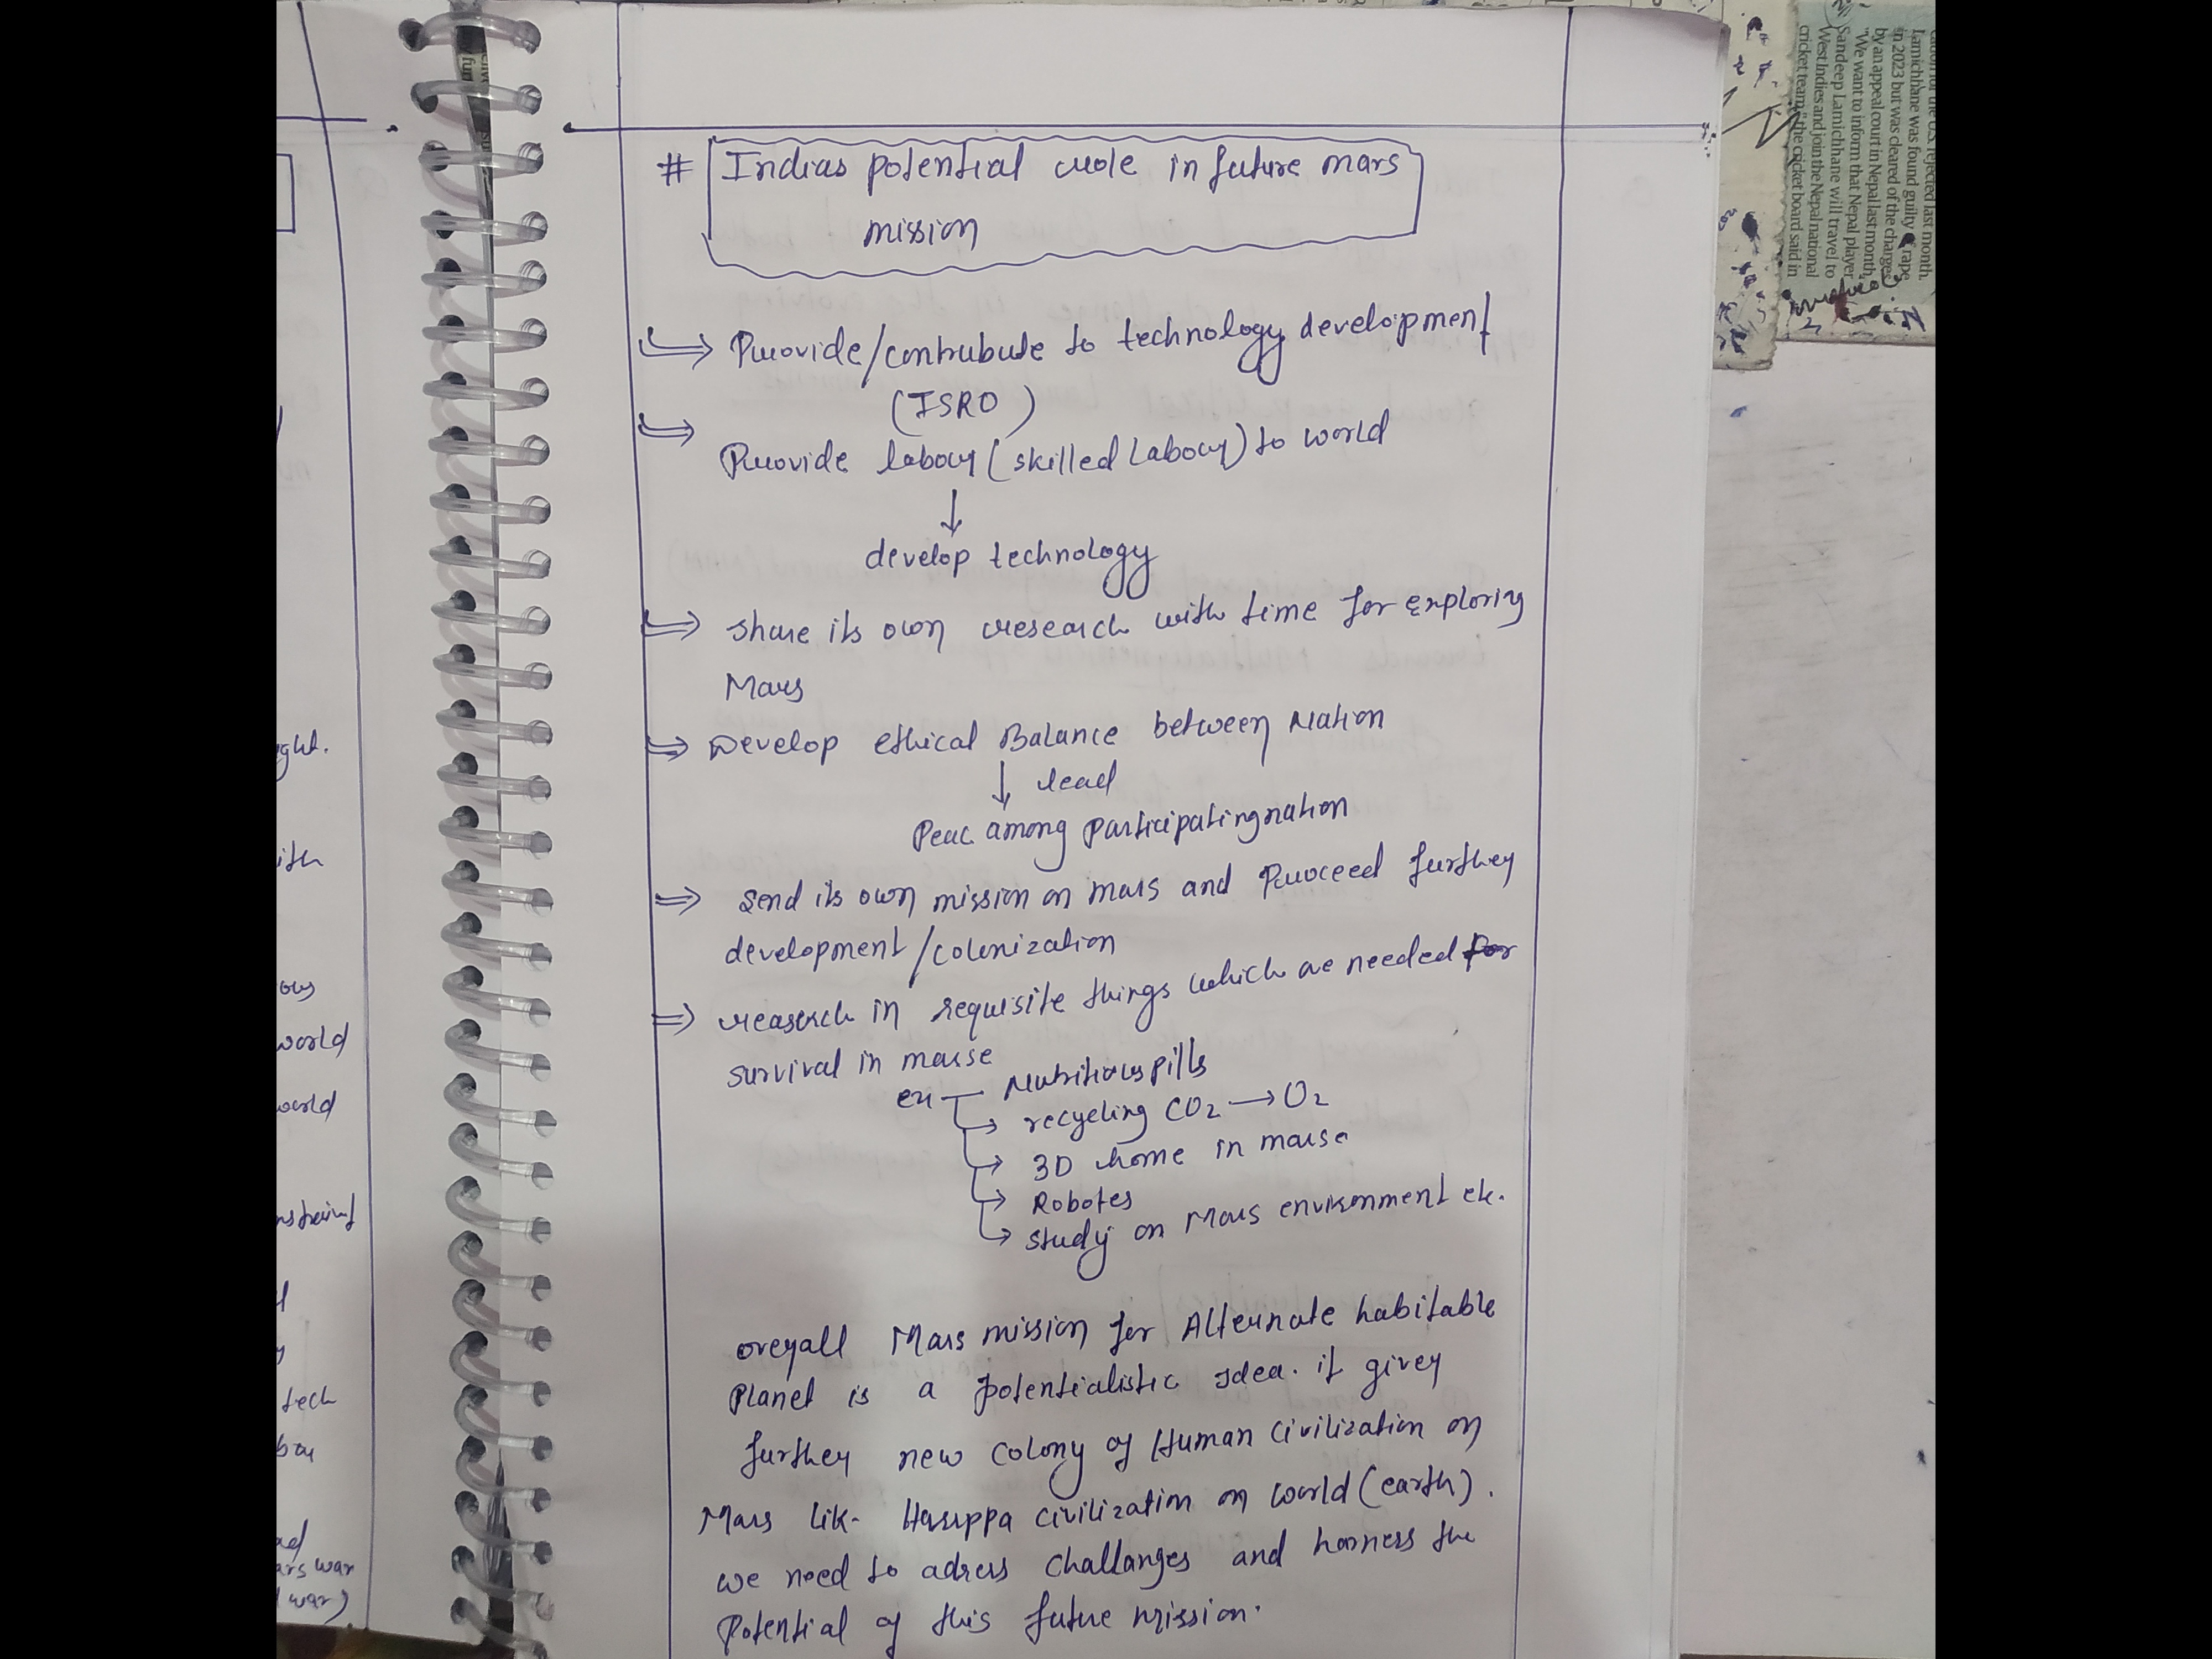 # Indias potential role in future mars
mission
Provide/contrubute to technology development
(ISRO)
Provide labour (skilled Labour) to world
↓
develop technology
share its own research with time for exploring
Mars
Develop ethical Balance between Nation
↓ lead
Peac among participating nation
send its own mission on mars and Proceed further
development/colonization
reaserch in requisite things which are needed for
survival in marse
ex Nutritious pills
recycling CO2 → O2
3D home in marse
Robotes
study on Mars environment etc.
overall Mars mission for Alternate habitable
Planet is a potentialistic idea. it given
further new colony of Human civilization on
Mars lik- Harrppa civilization on world (earth).
we need to adress challanges and harness the
Potential of this future mission.
ght.
ith
world
world
tech
ars war
war)
Lamichhane was found guilty of rape
in 2023 but was cleared of the charges
by an appeal court in Nepal last month.
"We want to inform that Nepal player
Sandeep Lamichhane will travel to
West Indies and join the Nepal national
cricket team," the cricket board said in